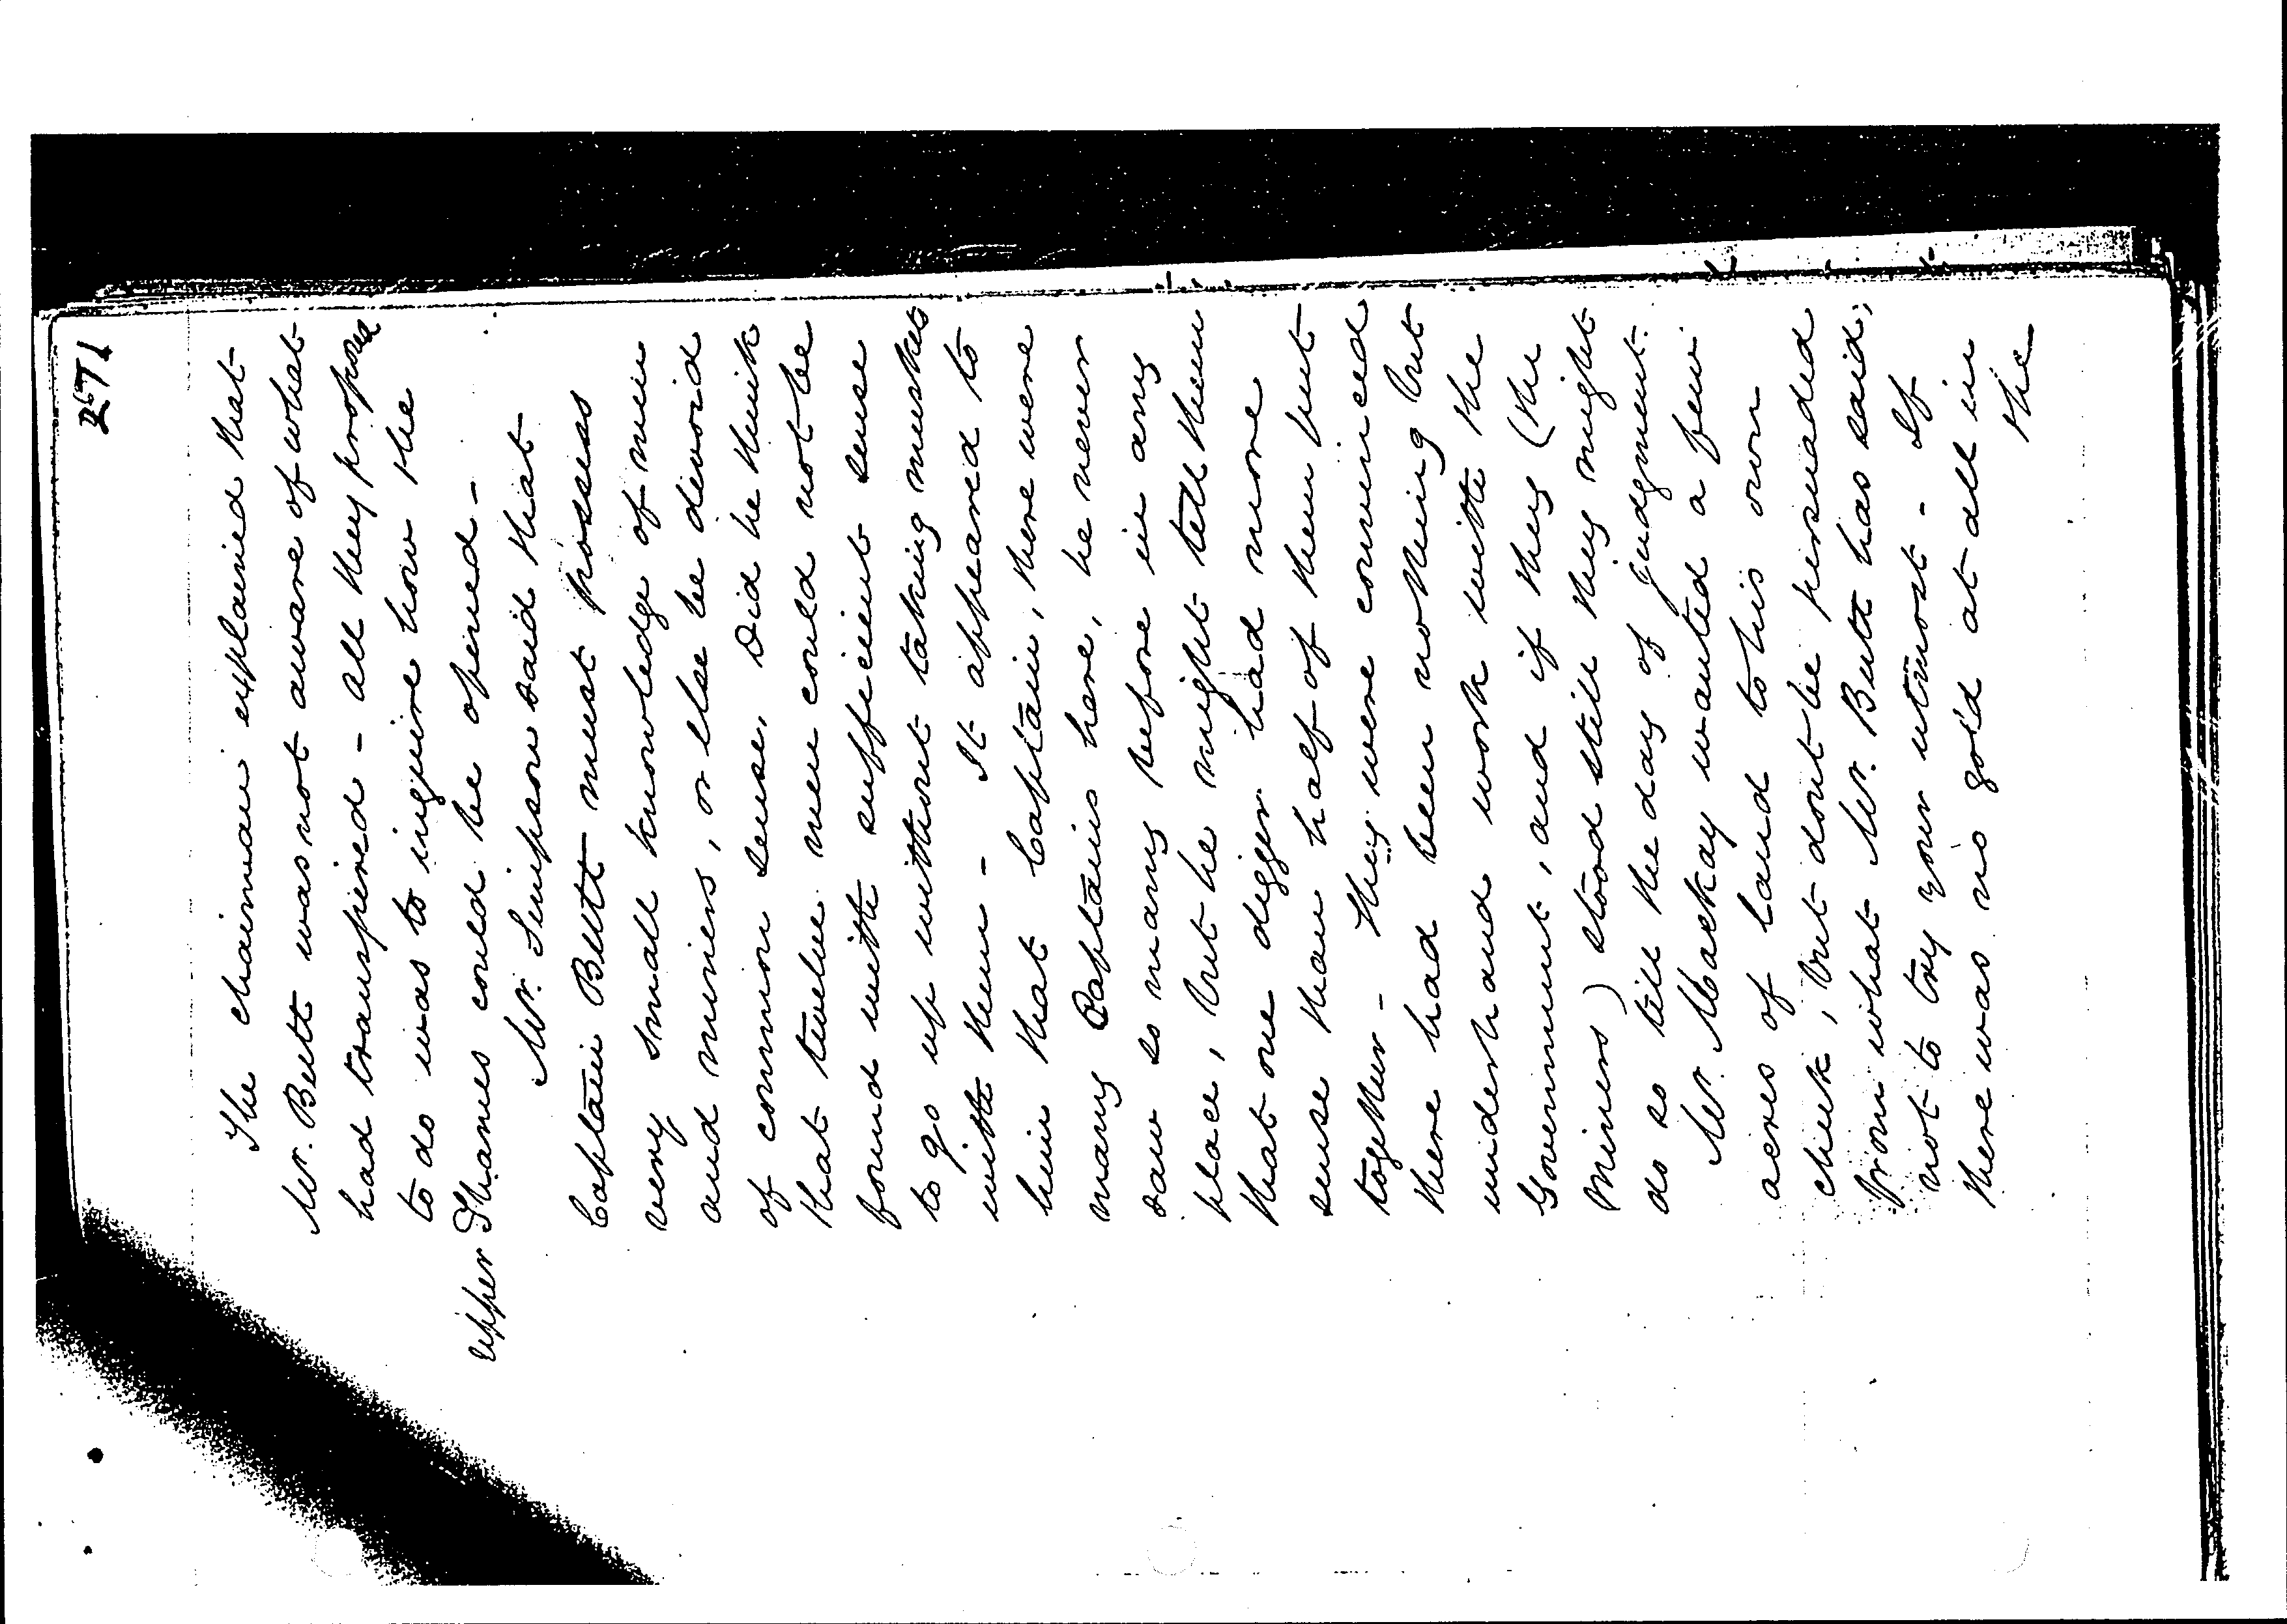 271
The chairman explained that
Mr. Butt was not aware of what
had transpired - all they proposed
to do was to inquire how the
Upper Thames could be opened -
Mr. Simpson said that
Captain Butt must possess
very small knowledge of men
and miners, or else be devoid
of common sense. Did he think
that twelve men could not be
found with sufficient sense
to go up without taking muskets
with them - It appeared to
him that Captain, there were
many Captains here, he never
saw so many before in any
place, but he might tell them
that one digger had more
sense than half of them put
together - They were convinced
there had been nothing but
underhand work with the
Government, and if they (the
miners) stood still they might
do so till the day of judgment.
Mr. Mackay wanted a few
acres of land to his own
cheek, but dont be persuaded
from what Mr. Butt has said,
not to try your utmost - If
there was no gold at all in
the